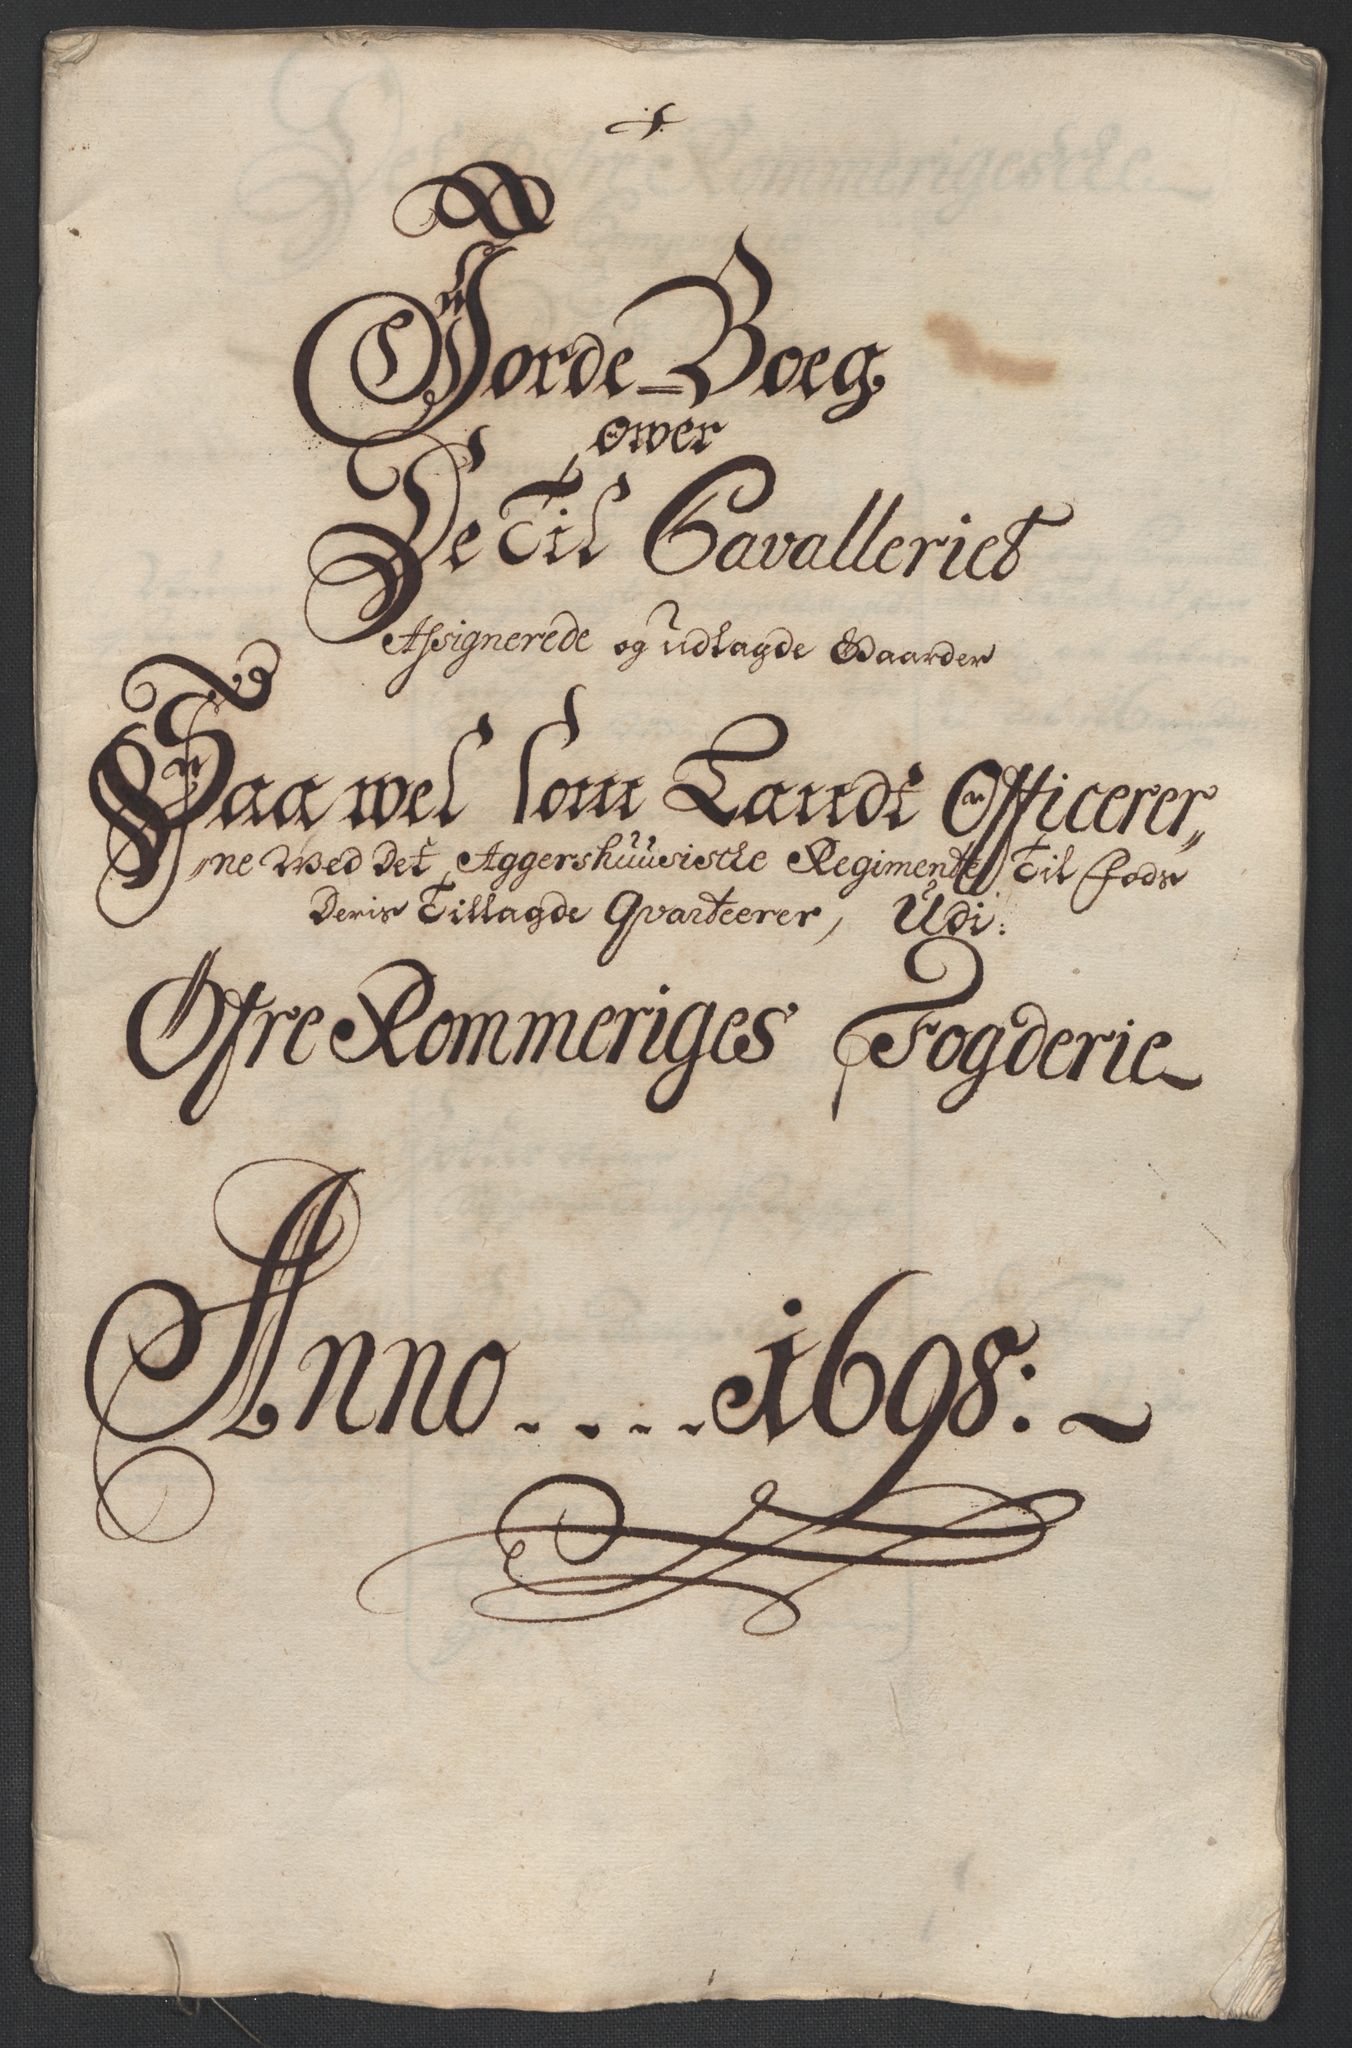 Jorde-Boeg
ower
De Til Cavalleriet
Assignerede og udlagde Gaarder
Saa wel som Landt Officerer„
„ne wed det Aggershuusiscke Regimente Til fods
Deris Tillagde Qvarteerer, Udi:
Øfre Rommeriges Fogderie
Anno....1698: